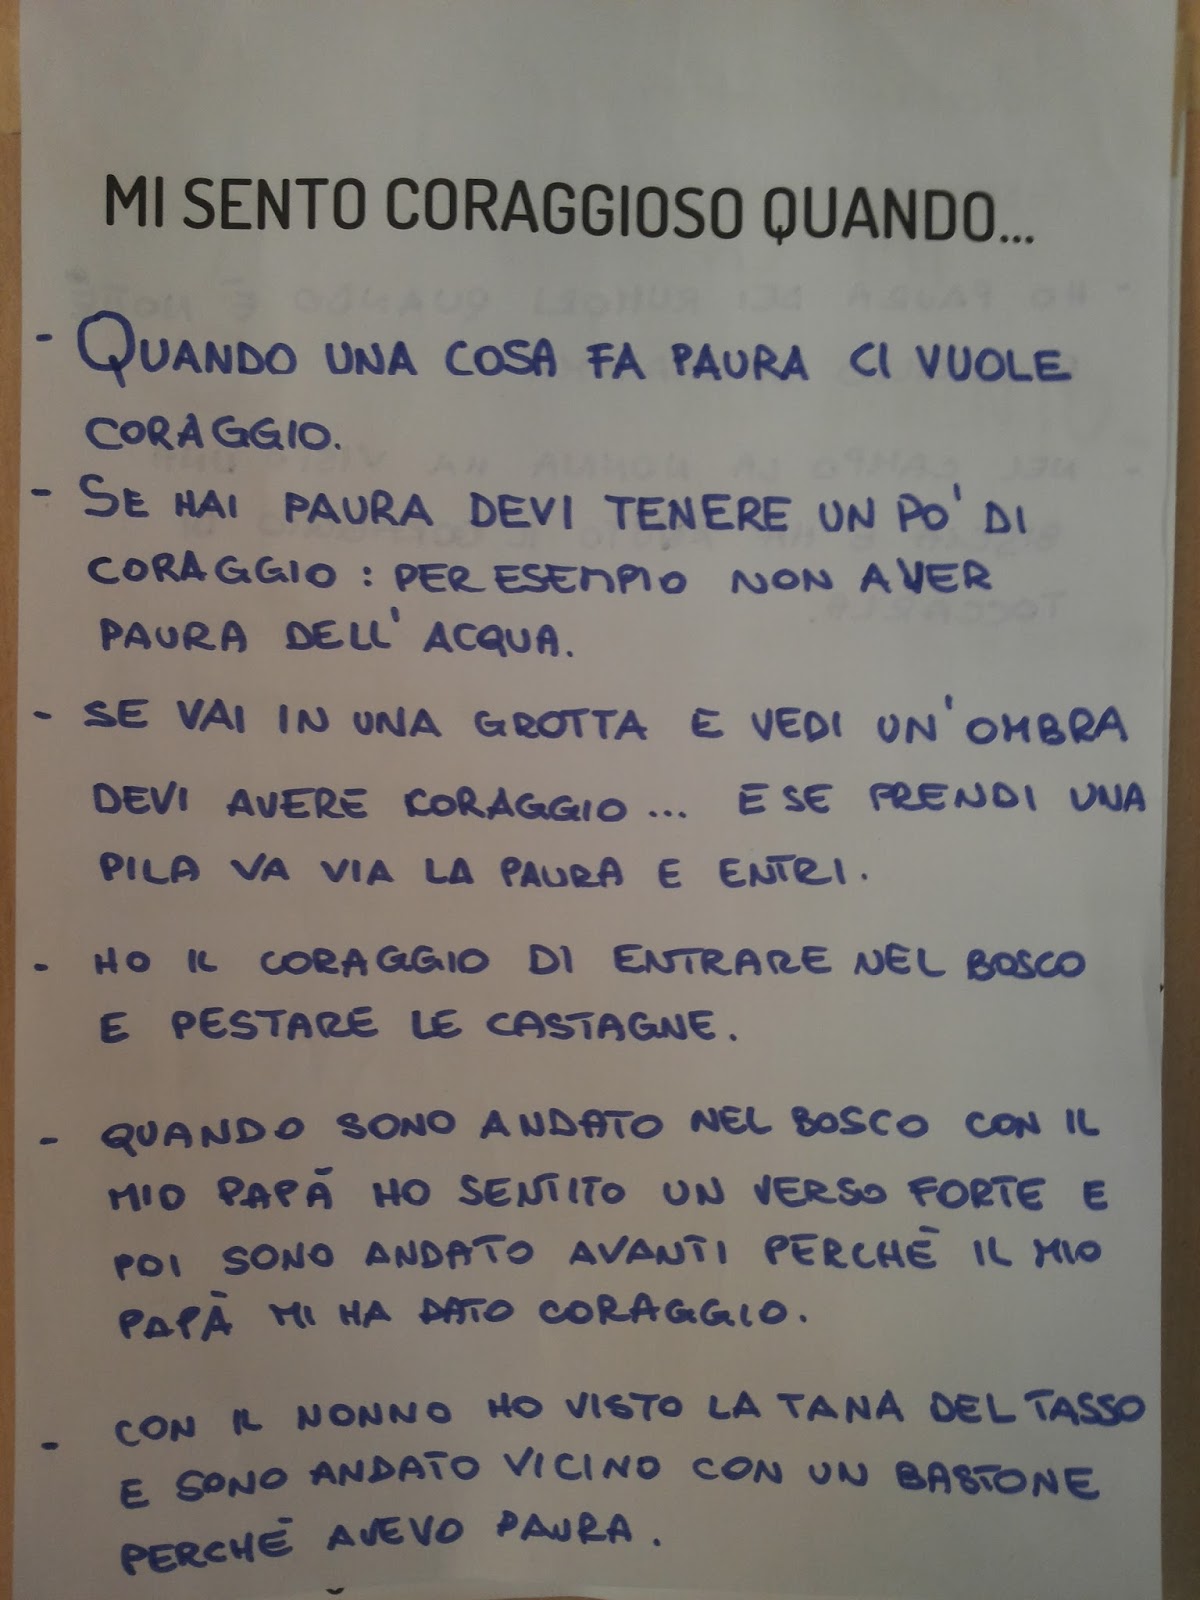 MI SENTO CORAGGIOSO QUANDO...
- QUANDO UNA COSA FA PAURA CI VUOLE
CORAGGIO.
- SE HAI PAURA DEVI TENERE UN PO' DI
CORAGGIO : PER ESEMPIO NON AVER
PAURA DELL' ACQUA.
- SE VAI IN UNA GROTTA E VEDI UN'OMBRA
DEVI AVERE CORAGGIO ... E SE PRENDI UNA
PILA VA VIA LA PAURA E ENTRI.
- HO IL CORAGGIO DI ENTRARE NEL BOSCO
E PESTARE LE CASTAGNE.
- QUANDO SONO ANDATO NEL BOSCO CON IL
MIO PAPÀ HO SENTITO UN VERSO FORTE E
POI SONO ANDATO AVANTI PERCHÈ IL MIO
PAPÀ MI HA DATO CORAGGIO.
- CON IL NONNO HO VISTO LA TANA DEL TASSO
E SONO ANDATO VICINO CON UN BASTONE
PERCHÈ AVEVO PAURA.